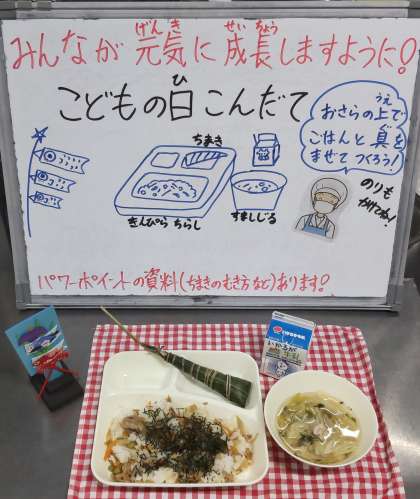 みんなが元気に成長しますように!
げんき
せいちょう
こどもの日こんだて
ひ
おさらの上で
うえ
ごはんと具を
ぐ
まぜてつくろう!
のりも
かけてね!
ちまき
きんぴらちらし
すましじる
パワーポイントの資料(ちまきのむき方など)あります!